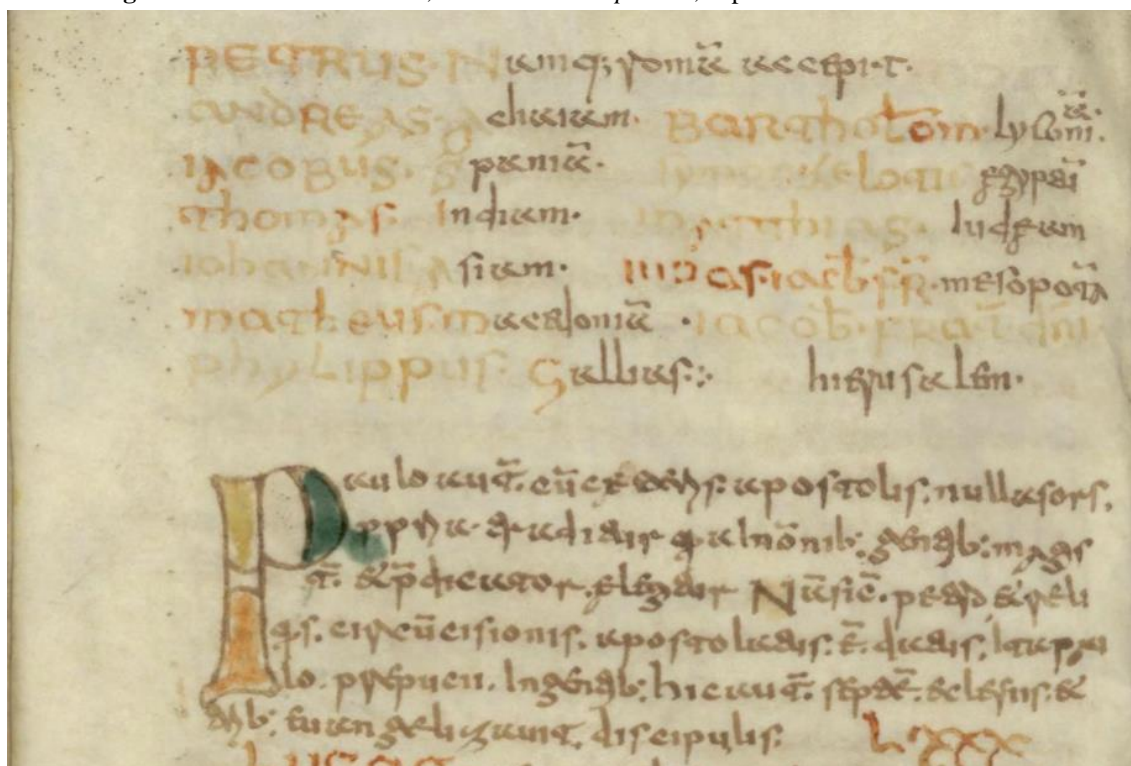 PETRUS. Namq; romā accepit.
ANDREAS. Achaiam. BARTHOLOM. lycaoniā.
IACOBUS. Spaniā. egyptū
Thomas. Indiam. MATTHIAS. Iudeam
Iohannis. Asiam. IUDAS. iacob fr̄. mesopotā
matheus. macedoniā. iacob. frat̄. dn̄i
phylippus. Gallias:. hierusalem.
Paulo aut̄. cū ceteris. apostolis. nulla sors.
ppria. traditur in omnib: gentib: magis
t̄. et p̄dicator. elegitur Nā sic̄. petro et reli
qs. circūcisionis. apostolatus. ē. datus. Ita pau
lo. preputii. Ingentib: hic aut̄. septē. eclesiis. et
euangelizauit. discipulis. LXXX